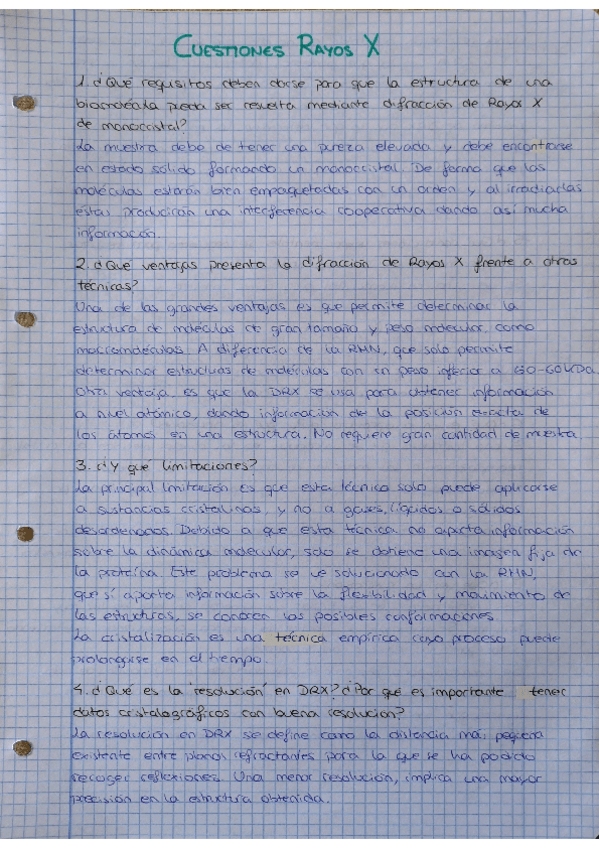 CUESTIONES RAYOS X
1. ¿Qué requisitos deben darse para que la estructura de una
biomolécula pueda ser resuelta mediante difracción de Rayos X
de monocristal?
La muestra debe de tener una pureza elevada y debe encontrarse
en estado sólido formando un monocristal. De forma que las
moléculas estarán bien empaquetadas con un orden y al irradiarlas
éstas producirán una interferencia cooperativa dando así mucha
información.
2. ¿Qué ventajas presenta la difracción de Rayos X frente a otras
técnicas?
Una de las grandes ventajas es que permite determinar la
estructura de moléculas de gran tamaño y peso molecular, como
macromoléculas. A diferencia de la RMN, que solo permite
determinar estructuras de moléculas con un peso inferior a
Otra ventaja es que la DRX se usa para obtener información
a nivel atómico, dando información de la posición exacta de
los átomos en una estructura. No requiere gran cantidad de muestra
3. ¿Y qué limitaciones?
La principal limitación es que esta técnica solo puede aplicarse
a sustancias cristalinas, y no a gases, líquidos o sólidos
desordenados. Debido a que esta técnica no aporta información
sobre la dinámica molecular, solo se obtiene una imagen fija de
la proteína. Este problema se ve solucionado con la RMN,
que sí aporta información sobre la flexibilidad y movimiento de
las estructuras, se conocen las posibles conformaciones.
La cristalización es una técnica empírica cuyo proceso puede
prolongarse en el tiempo.
4. ¿Qué es la 'resolución' en DRX? ¿Por qué es importante tener
datos cristalográficos con buena resolución?
La resolución en DRX se define como la distancia más pequeña
existente entre planos refractantes para la que se ha podido
recoger reflexiones. Una menor resolución, implica una mayor
precisión en la estructura obtenida.